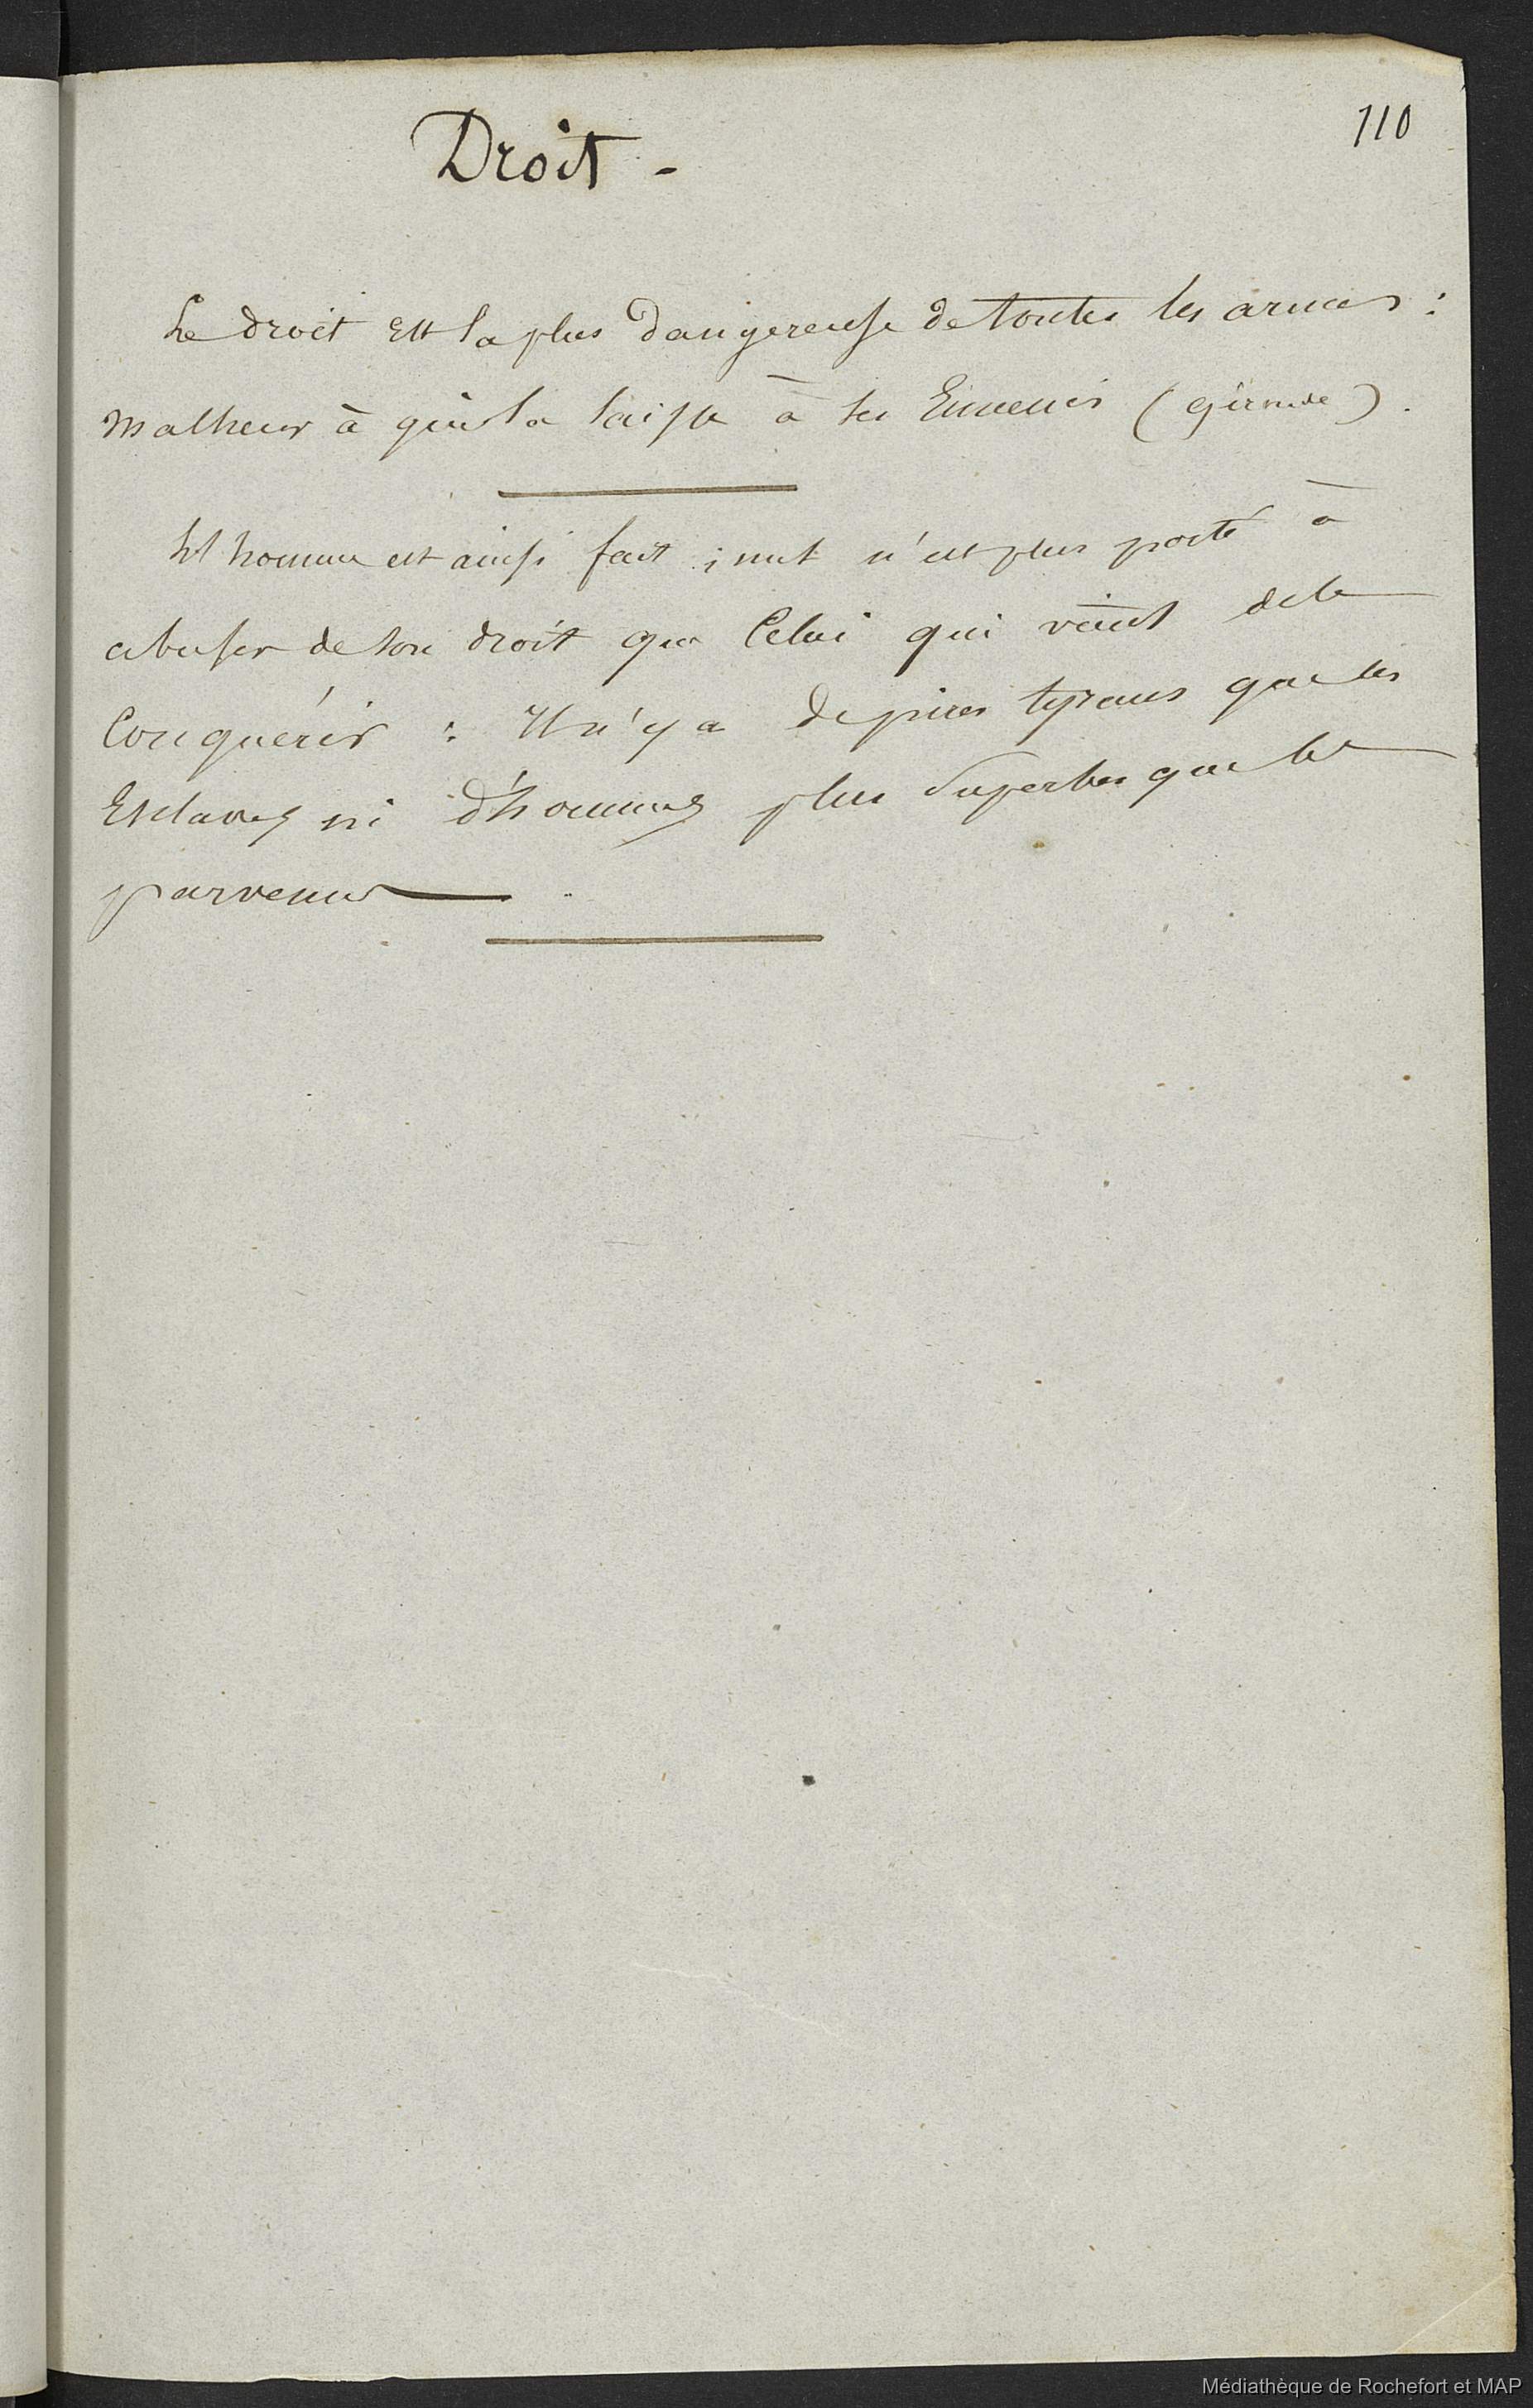 110
Droit -
Le droit est la plus dangereuse de toutes les armes :
malheur à qui la laisse à ses Ennemis (Gironde).
L'homme est ainsi fait ; nul n'est plus porté à
abuser de son droit que Celui qui vient de le
Conquérir : Il n'y a de pires tyrans que les
Esclaves ni d'hommes plus Superbes que les
parvenus
Médiathèque de Rochefort et MAP